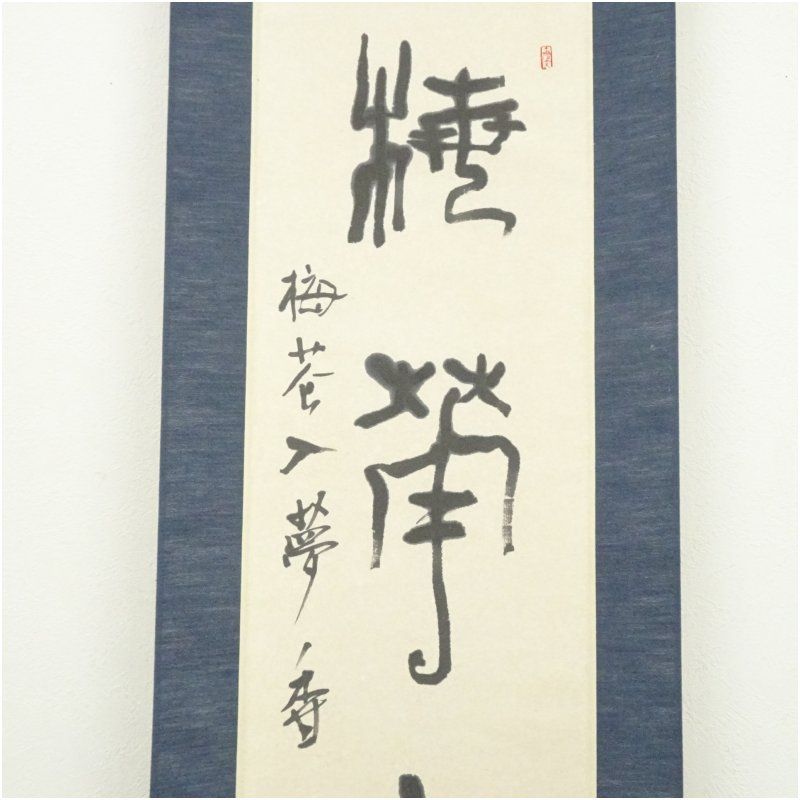 梅華
梅花入夢香